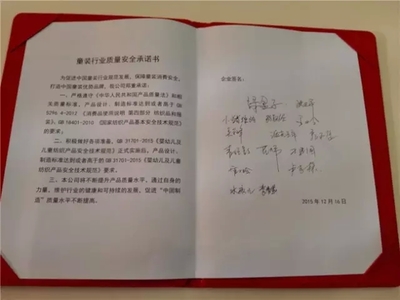 童装行业质量安全承诺书
为促进中国童装行业规范发展，保障童装消费安全，
打造中国童装优势品牌，我公司郑重承诺：
一、严格遵守《中华人民共和国产品质量法》和相
关质量标准，产品设计、制造标准达到或者高于 GB
5296.4-2012《消费品使用说明 第四部分 纺织品和服
装》、GB 18401-2010《国家纺织产品基本安全技术规范》
的要求。
二、积极做好各项准备，GB 31701-2015《婴幼儿及
儿童纺织产品安全技术规范》正式实施后，产品设计、
制造标准达到或者高于 GB 31701-2015《婴幼儿及儿童
纺织产品安全技术规范》要求。
三、本公司将不断提升产品质量水平，通过自身的
力量，维护行业的健康和可持续的发展，促进“中国制
造”质量水平不断提高。
企业签名：
2015 年 12 月 16 日